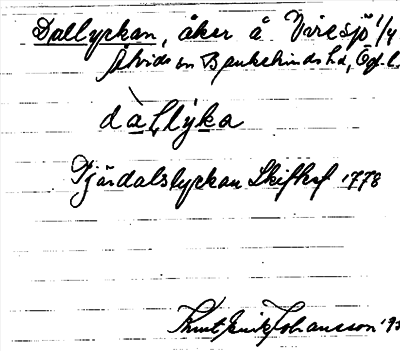 Dallyckan, åker å Viresjö 1/4
Åtvids sn Bankekinds hd, Ög. l.
dal̀lýka
Tjärdalslyckan Skifteskf 1778
Knut Erik Johansson